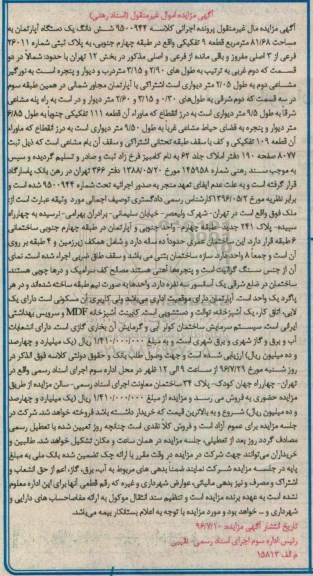 آگهی مزایده اموال غیرمنقول (اسناد رهنی)
آگهی مزایده مال غیرمنقول پرونده اجرائی کلاسه ۹۵۰۰۹۴۴ شش دانگ یک دستگاه آپارتمان به
مساحت ۸۱/۶۸ مترمربع قطعه ۹ تفکیکی واقع در طبقه چهارم جنوبی، به پلاک ثبتی شماره ۲۶۰۱۱
فرعی از ۳ اصلی مفروز و باقی مانده از فرعی و اصلی مذکور در بخش ۱۲ تهران با حدود: شمالا در دو
قسمت که دوم غربی به ترتیب به طول های ۲/۹۰ و ۲/۱۵ متر درب و دیوار و پنجره است به نورگیر
مشاعی دوم به طول ۲/۰۵ متر دیواری است اشتراکی با آپارتمان مجاور شمالی در همین طبقه سوم
در سه قسمت که دوم شرقی به طول های ۰/۳۰ و ۳/۱۵ و ۲/۶۰ متر دیوار و در است به راه پله مشاعی
شرقاً به طول ۹/۱۵ متر دیواری است به درز انقطاع که ماوراء آن قطعه ۱۱۱ تفکیکی جنوباً به طول ۶/۸۵
متر دیوار و پنجره به فضای حیاط مشاعی غربا به طول ۹/۱۵ متر دیواری است به درز انقطاع که ماوراء
آن قطعه ۱۰۹ تفکیکی و کف با سقف طبقه تحتانی اشتراکی و سقف آن بام مشاعی است که ذیل ثبت
۸۰۷۷ صفحه ۱۹۰ دفتر املاک جلد ۶۲ به نام کامبیز فرخ زاد ثبت و صادر و تسلیم گردیده و سپس
به موجب سند رهنی شماره ۱۴۵۹۵۸ مورخ ۱۳۸۸/۰۵/۲۰ دفتر ۳۶۶ تهران در رهن بانک پاسارگاد
قرار گرفته است و به علت عدم ایفای تعهد منجر به صدور اجرائیه تحت شماره ۹۵۰۰۹۴۴ شده است و
برابر نظریه مورخ ۱۳۹۶/۰۵/۲ کارشناس رسمی دادگستری توصیف اجمالی مورد وثیقه عبارت است از:
ملک فوق واقع است در تهران- شهرک ولیعصر- خیابان سلیمانی- برادران بهرامی- نرسیده به چهارراه
سپیده- پلاک ۲۴۱ جدید- طبقه چهارم- واحد جنوبی و آپارتمان در طبقه چهارم جنوبی ساختمانی
۶ طبقه قرار دارد. این ساختمان عمری حدود ده ساله دارد و شامل همکف زیرزمین و ۴ طبقه بر روی
آن است و جمعا ۸ واحد دارد. سازه ساختمان بتنی می باشد و سقف طاق ضربی اجراء شده است. نمای
آن از جنس سنگ گرانیت است و پنجره ها آهنی هستند مصالح کف سرامیک و درها چوبی هستند
ساختمان در ضلع شرقی یک آسانسور سه نفره دارد. واحدها به صورت نیم طبقه ساخته شده اند و در هر
پاگرد یک واحد است. آپارتمان دارای موقعیت اداری می باشد ولی کاربری آن مسکونی است دارای یک
لابی، اتاق کار، یک آشپزخانه، توالت و دستشویی است. کابینت آشپزخانه MDF و سرویس بهداشتی
ایرانی است. سیستم سرمایش ساختمان کولر آبی و گرمایش آن بخاری گازی است. دارای انشعابات
آب و برق و گاز شهری و برق شهری است. و به مبلغ ۱/۴۱۰/۰۰۰/۰۰۰ ریال (یک میلیارد و چهارصد
و ده میلیون ریال) ارزیابی شده است و جهت وصول طلب بانک و حقوق دولتی کلاسه فوق الذکر در
روز شنبه مورخ ۹۶/۷/۲۹ از ساعت ۹ الی ۱۲ ظهر در محل اداره سوم اجرای اسناد رسمی واقع در
تهران- چهارراه جهان کودک- پلاک ۳۴ ساختمان معاونت اجرای اسناد رسمی- سالن مزایده از طریق
مزایده حضوری به فروش می رسد و مزایده از مبلغ ۱/۴۱۰/۰۰۰/۰۰۰ ریال (یک میلیارد و چهارصد
و ده میلیون ریال) شروع و به بالاترین قیمت که خریدار داشته باشد فروخته خواهد شد. شرکت در
جلسه مزایده برای عموم آزاد است و فروش کلا نقدی است چنانچه روز تعیین شده با تعطیل رسمی
مصادف گردد روز بعد از تعطیلی، جلسه مزایده در همان ساعت و مکان تشکیل خواهد شد. طالبین و
خریداران می توانند جهت شرکت در مزایده در وقت مقرر با ارائه چک تضمین شده بانک ملی به مبلغ
پایه در جلسه مزایده شرکت نمایند ضمناً بدهی های مربوط به آب، برق، گاز، اعم از حق انشعاب و
اشتراک و مصرف و نیز بدهی مالیاتی، عوارض شهرداری و غیره که رقم قطعی آنها برای این اداره معلوم
نشده است به عهده برنده مزایده است و تنظیم سند انتقال موکول به ارائه مفاصاحساب های دارایی و
شهرداری و ... خواهد بود و مورد مزایده با توجه به اعلام بستانکار بیمه می باشد.
تاریخ انتشار آگهی مزایده: ۹۶/۷/۱۰
رئیس اداره سوم اجرای اسناد رسمی-
م الف ۱۵۸۱۳